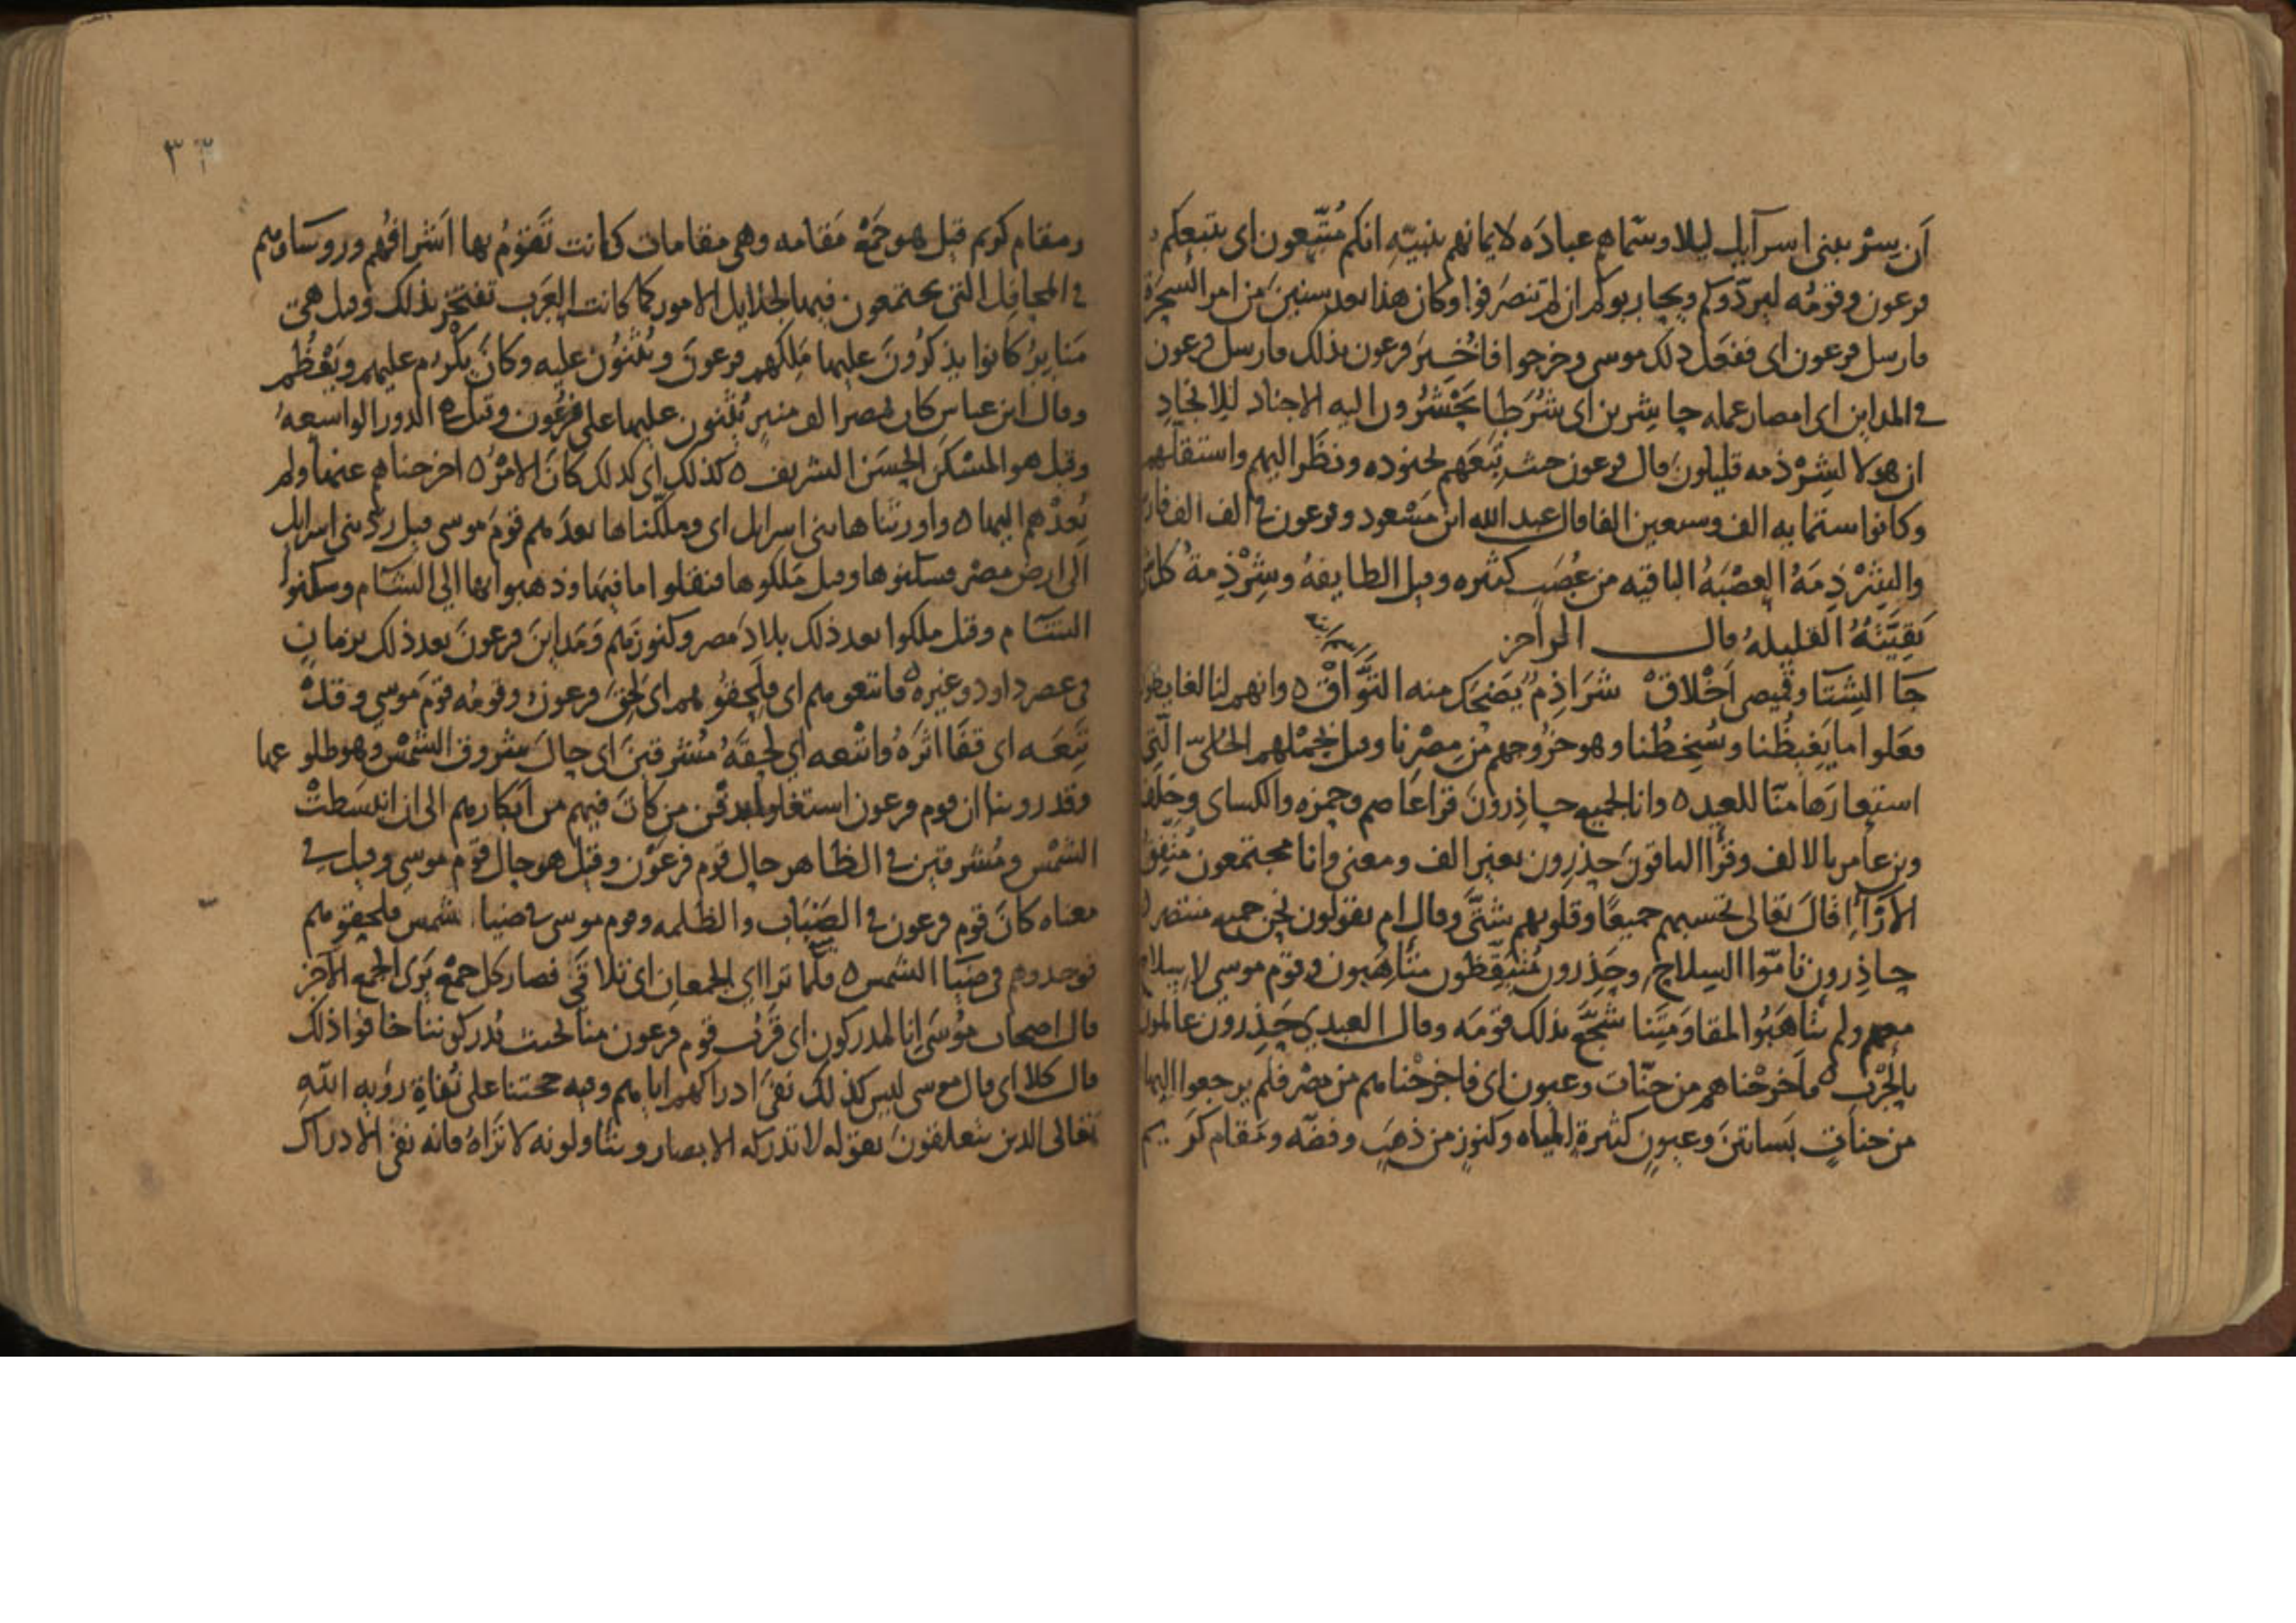 أن يسر ببنى اسرآيل ليلا وسماهم عباده لايمانهم بنبيه انكم متبعون اى يتبعكم
فرعون وقومه ليردوكم ويحاربوكم ان لم تنصرفوا وكان هذا بعد سنين من امر السحرة
فارسل فرعون اى ففعل ذلك موسى وخرجوا فاخبر فرعون بذلك فارسل فرعون
فى المداين اى امصار عمله حاشرين اى شرطا يحشرون اليه الاجناد
ان هولا لشرذمه قليلون قال فرعون حين تبعهم بجنوده ونظر اليهم واستقلهم
وكانوا ستمايه الف وسبعين الفا قال عبد الله ابن مسعود وفرعون فى الف الف
والشرذمة العصبة الباقيه من عصب كثيره وقيل الطايفه وشرذمة كل
بقيته القليله قال الراجز
جا الشتا وقميصى اخلاق شراذم يضحك منه التواق ه وانهم لنا لغايظون
فعلوا ما يغيظنا ويسخطنا وهو خروجهم من مصرنا وقيل بحملهم الحلى التى
استعارها منا للعيد ه وانا لجميع حاذرون قرا عاصم وحمزه والكساى وخلف
وبن عامر بالالف وقرا الباقون حذرون بغير الف ومعنى وانا مجتمعون
الآرآ قال تعالى تحسبهم جميعا وقلوبهم شتى وقال ام يقولون نحن جميع منتصر
حاذرون تامّوا السلاح وحذرون متيقظون متأهبون وقوم موسى لا سلاح
معهم ولم يتأهبوا لمقاومتنا شجع بذلك قومه وقال العبدى حذرون عالمون
بالحرب ه فاخرجناهم من جنات وعيون اى فاخرجناهم من مصر فلم يرجعوا اليها
من جنات بساتين وعيون كثيرة المياه وكنوز من ذهب وفضه ومقام كريم
٣٣
ومقام كريم قيل هو جمع مقامه وهى مقامات كانت تقوم بها اشرافهم وروساوهم
فى المحافل التى يجتمعون فيها لجلايل الامور كما كانت العرب تفتخر بذلك وقيل هى
منابر كانوا يذكرون عليها ملكهم فرعون ويثنون عليه وكان يكرم عليهم ويعظم
وقال ابن عباس كان بمصر الف منبر يثنون عليها على فرعون وقيل الدور الواسعه
وقيل هو المسكن الحسن الشريف ه كذلك اى كذلك كان الامر ه اخرجناهم عنها ولم
نعدهم اليها ه واورثناها بنى اسرايل اى وملكناها بعدهم قوم موسى قيل رد بنى اسرايل
الى ارض مصر فسكنوها وقيل ملكوها فنقلوا ما فيها وذهبوا بها الى الشام وسكنوا
الشام وقيل ملكوا بعد ذلك بلاد مصر وكنوزهم ومداين فرعون بعد ذلك بزمان
فى عصر داود وغيره ه فاتبعوهم اى فلحقوهم اى لحق فرعون وقومه قوم موسى وقد
تبعه اى قفا اثره واتبعه اى لحقه مشرقين اى حال شروق الشمس وهو طلوعها
وقد روينا ان قوم فرعون استغلوا بدفن من مات فيهم من ابكارهم الى ان انبسطت
الشمس ومشرقين فى الظاهر حال قوم فرعون وقيل هو حال قوم موسى وقيل فى
معناه كان قوم فرعون فى الضباب والظلمه وقوم موسى فى ضياء الشمس فلحقوهم
فوجدوهم فى ضيا الشمس ه فلما ترااى الجمعان اى تلاقى فصار كل جمع يرى الجمع الآخر
قال اصحاب موسى انا لمدركون اى قرب قوم فرعون منا بحيث يدركوننا خافوا ذلك
قال كلا اى قال موسى ليس كذلك نفى ادراكهم اياهم وفيه حجتنا على نفاة رؤيه الله
تعالى الذين يتعلقون بقوله لا تدركه الابصار ويتاولونه لا تراه فانه نفى الادراك